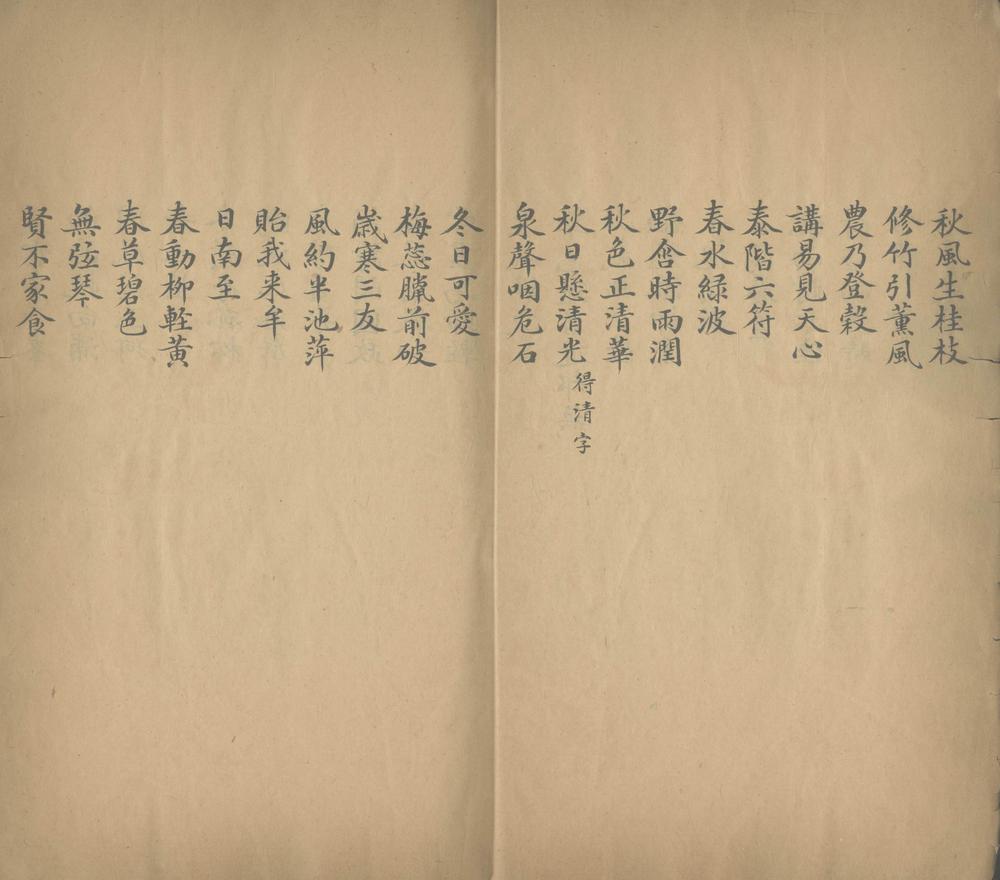 秋風生桂枝
修竹引薰風
農乃登穀
講易見天心
泰階六符
春水綠波
野含時雨潤
秋色正清華
秋日懸清光得清字
泉聲咽危石
冬日可愛
梅蕊臘前破
歲寒三友
風約半池萍
貽我来牟
日南至
春動柳軽黃
春草碧色
無弦琴
賢不家食